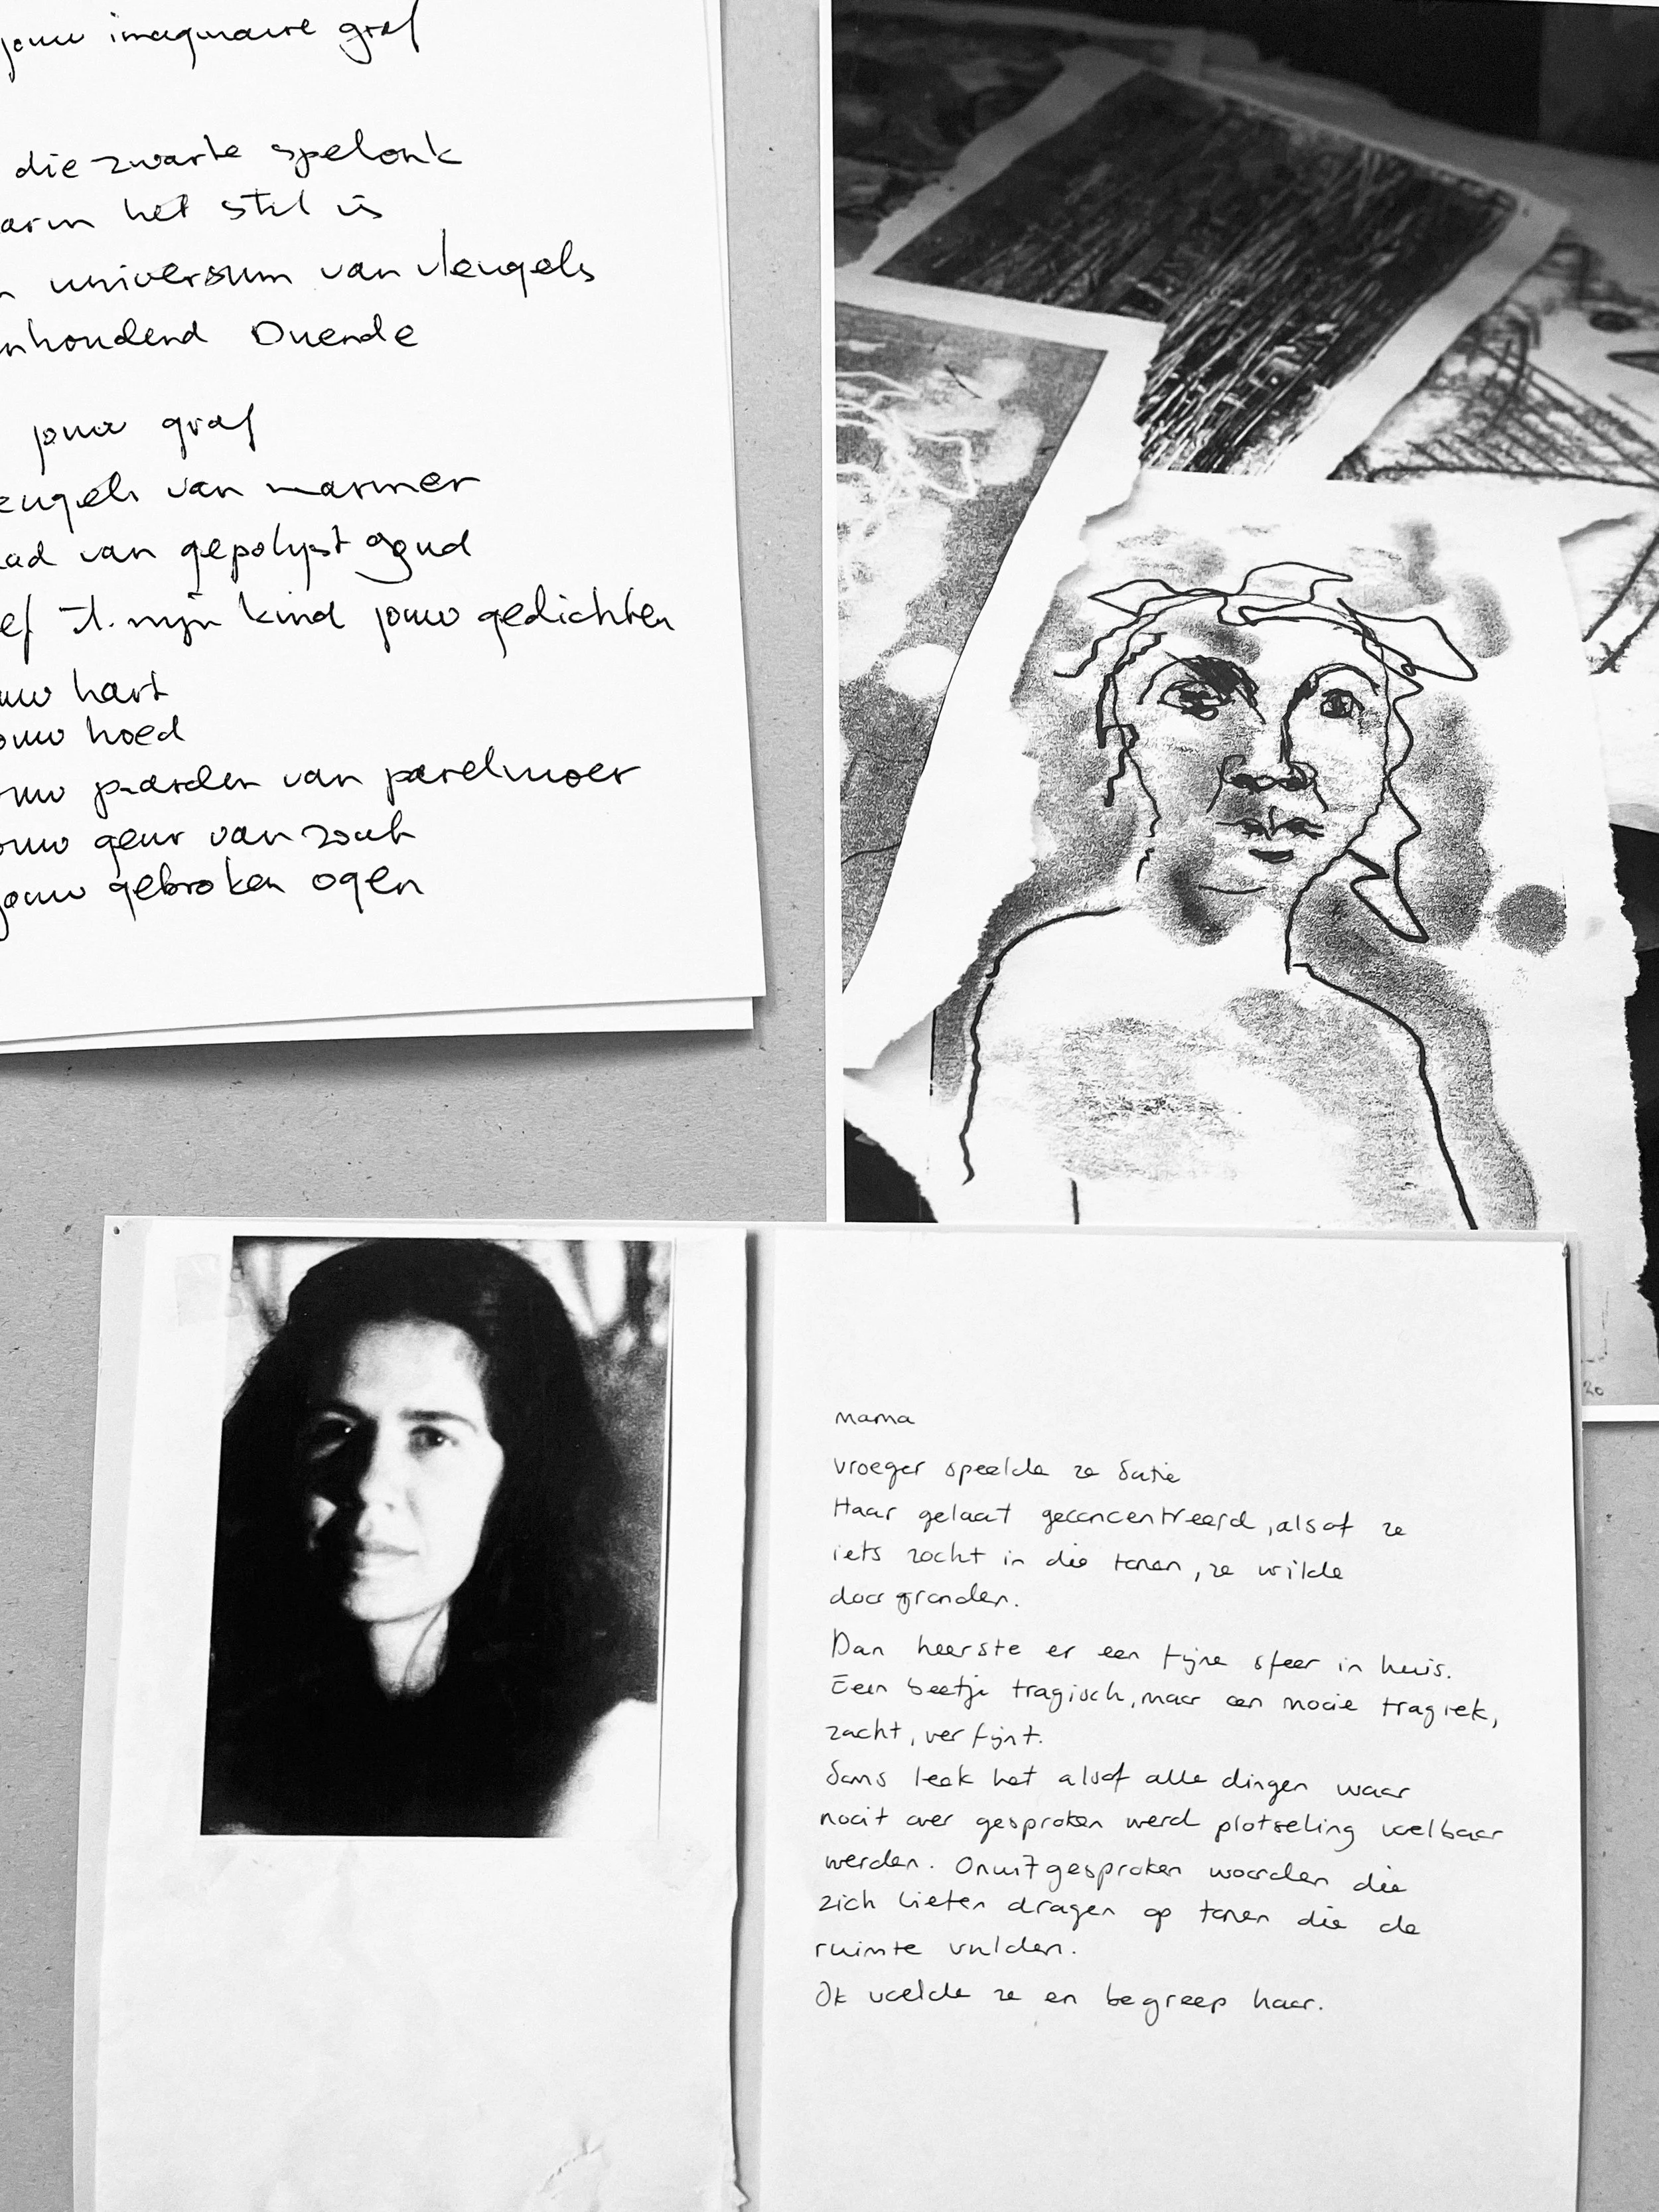 jouw imaginaire graf
die zwarte spelonk
het stil is
universum van vleugels
Duende
jouw graf
van marmer
van gepolijst goud
mijn kind jouw gedichten
hart
hoed
paarden van parelmoer
geur van zout
jouw gebroken ogen
mama
vroeger speelde ze Satie
Haar gelaat geconcentreerd, alsof ze
iets zocht in die tonen, ze wilde
doorgronden.
Dan heerste er een fijne sfeer in huis.
Een beetje tragisch, maar een mooie tragiek,
zacht, verfijnt.
Soms leek het alsof alle dingen waar
nooit over gesproken werd plotseling voelbaar
werden. Onuitgesproken woorden die
zich lieten dragen op tonen die de
ruimte vulden.
Ik voelde ze en begreep haar.